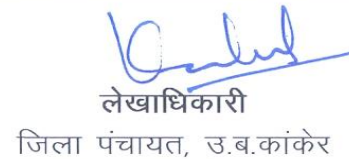 लेखाधिकारी
जिला पंचायत, उ.ब.कांकेर